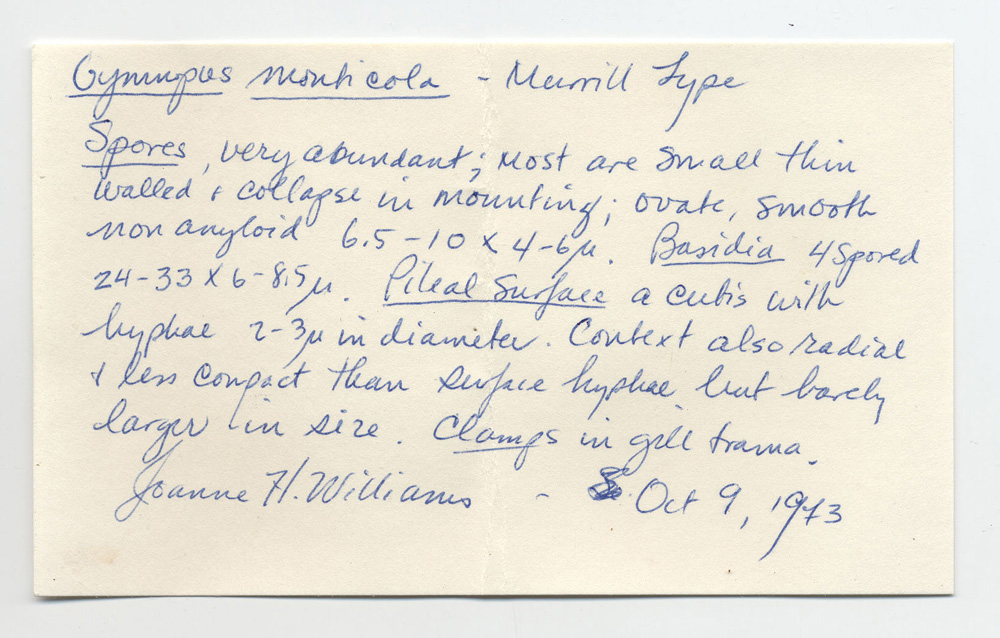 Gymnopus monticola - Murrill Type
Spores, very abundant; most are small thin
walled & collapse in mounting; ovate, smooth
non amyloid 6.5-10 x 4-6µ. Basidia 4 spored
24-33 x 6-8.5µ. Pileal Surface a cutis with
hyphae 2-3µ in diameter. Context also radial
& less compact than surface hyphae but barely
larger in size. Clamps in gill trama.
Joanne H. Williams - Oct 9, 1973